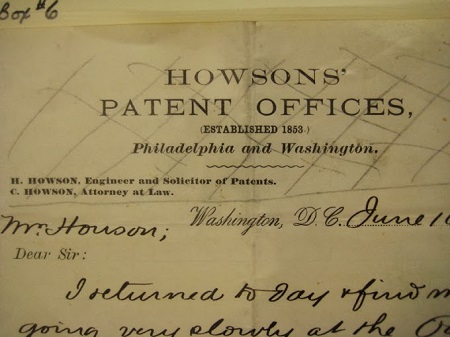 Box #6
HOWSONS'
PATENT OFFICES,
(ESTABLISHED 1853.)
Philadelphia and Washington.
H. HOWSON, Engineer and Solicitor of Patents.
C. HOWSON, Attorney at Law.
Washington, D.C. June 10
Mr. Howson;
Dear Sir:
I returned to day & find m
going very slowly at the